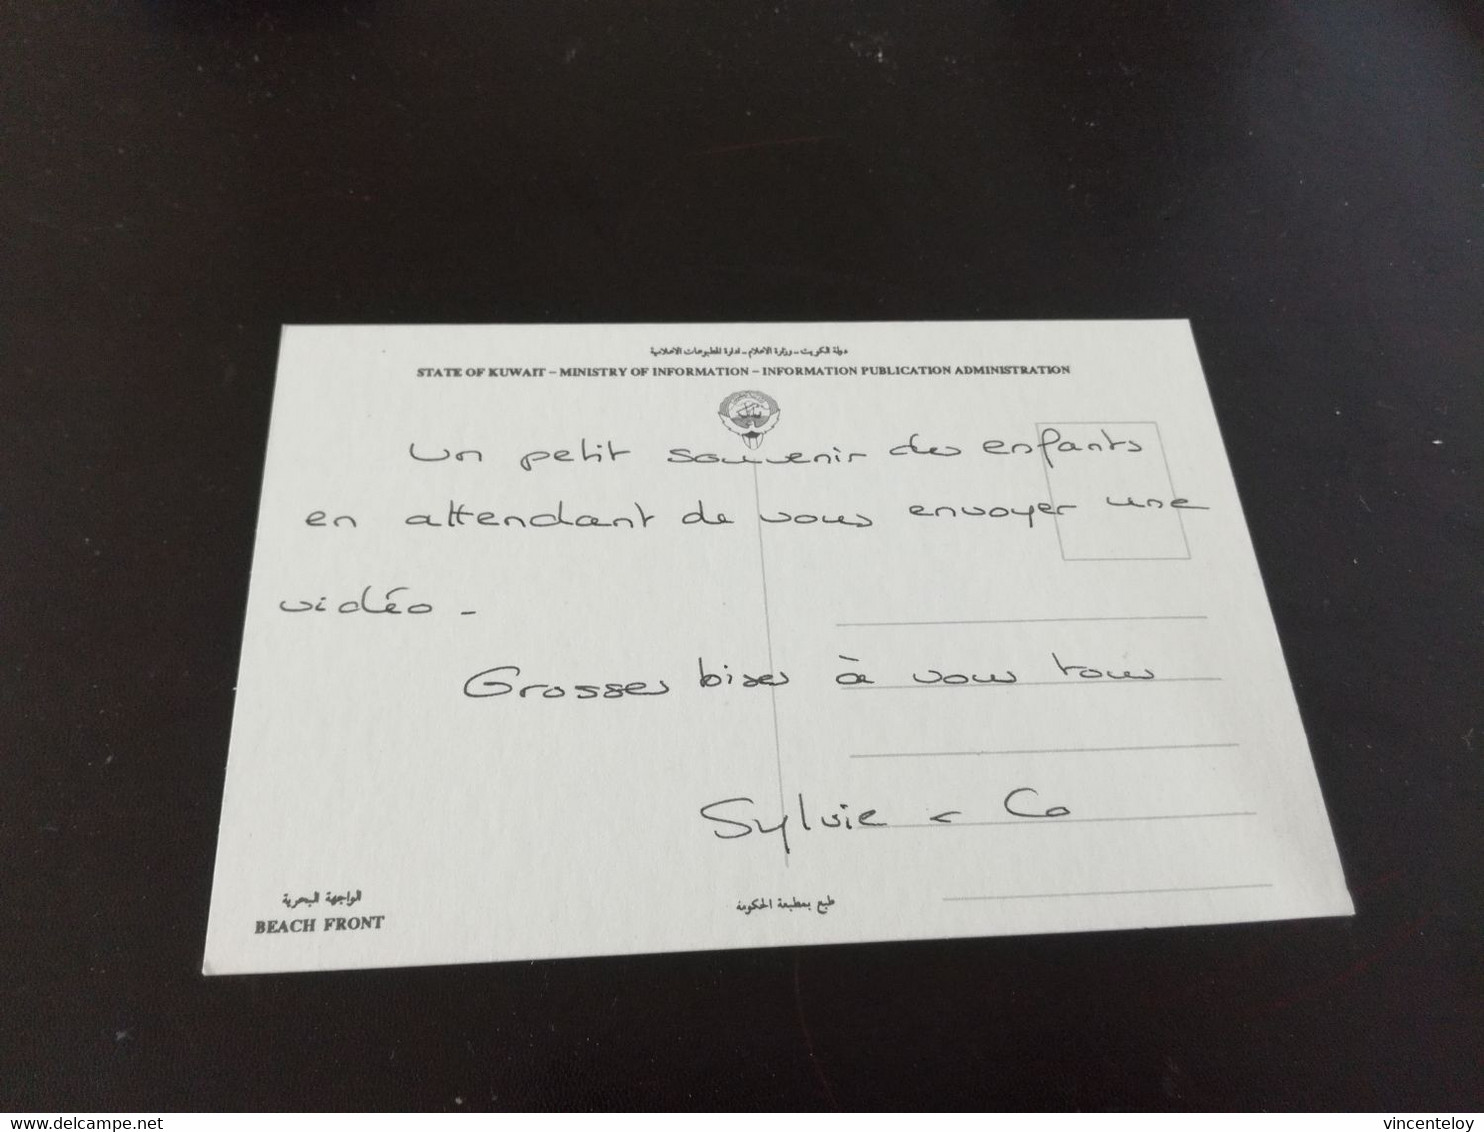 دولة الكويت - وزارة الاعلام - ادارة المطبوعات الاعلامية
STATE OF KUWAIT – MINISTRY OF INFORMATION – INFORMATION PUBLICATION ADMINISTRATION
Un petit souvenir des enfants
en attendant de vous envoyer une
vidéo -
Grosses bises à vous tous
Sylvie & Co
الواجهة البحرية
BEACH FRONT
طبع بمطبعة الحكومة
www.delcampe.net
vincenteloy